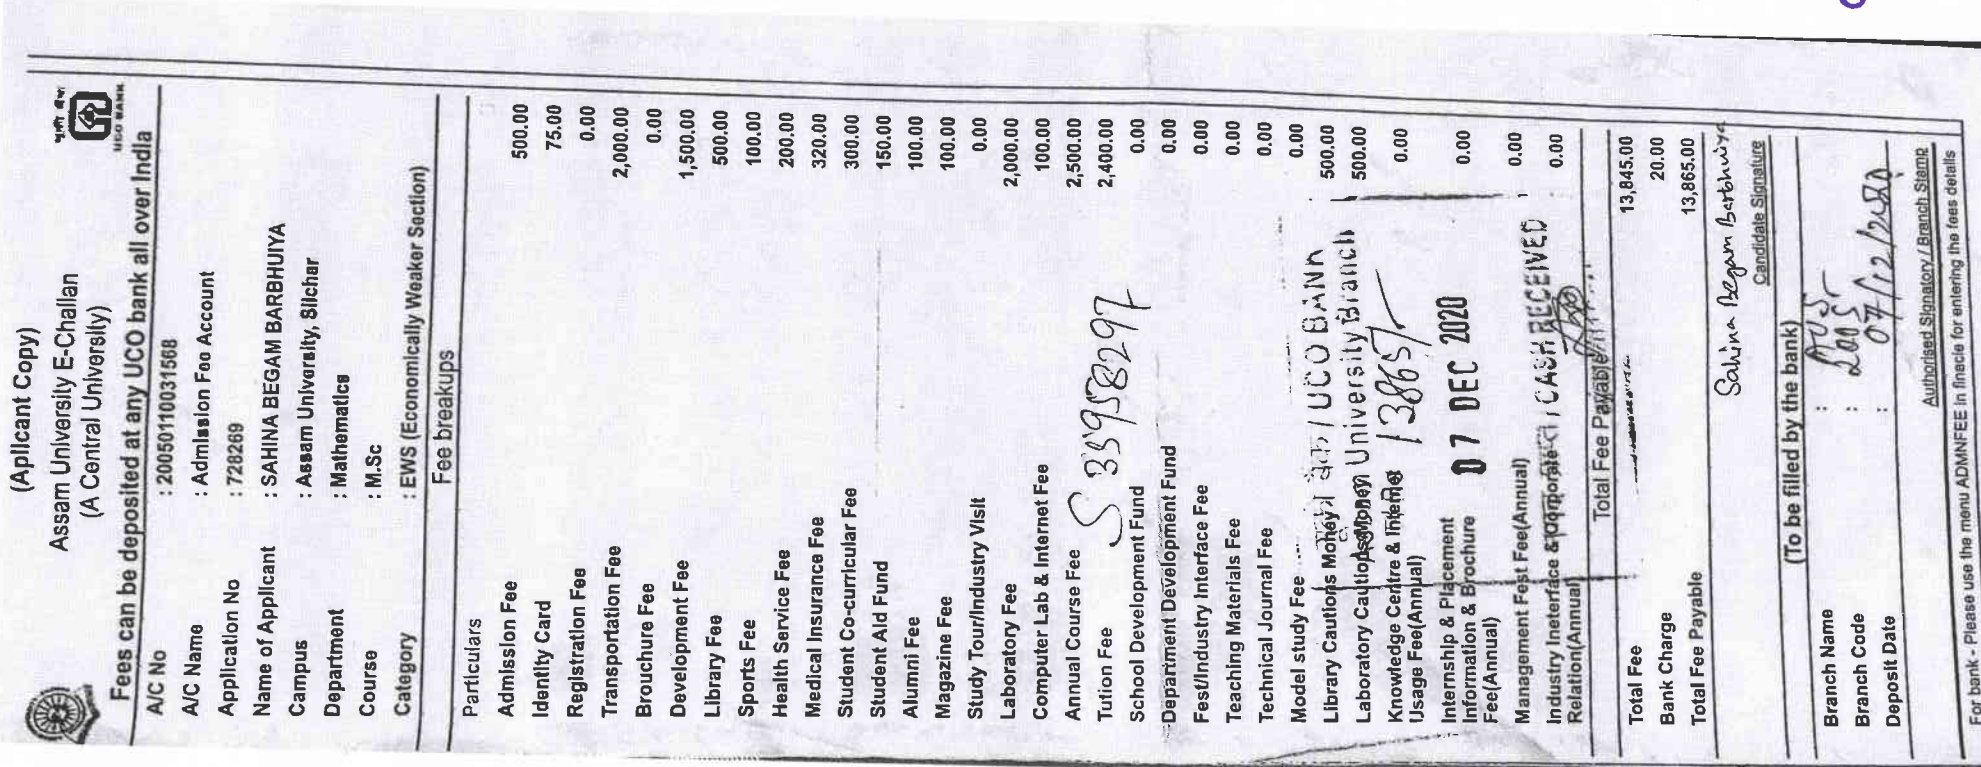 (Aplicant Copy)
Assam University E-Challan
(A Central University)
UCO BANK
Fees can be deposited at any UCO bank all over India
A/C No : 20050110031568
A/C Name : Admission Fee Account
Application No : 728269
Name of Applicant : SAHINA BEGAM BARBHUIYA
Campus : Assam University, Silchar
Department : Mathematics
Course : M.Sc
Category : EWS (Economically Weaker Section)
Fee breakups
Particulars
Admission Fee 500.00
Identity Card 75.00
Registration Fee 0.00
Transportation Fee 2,000.00
Brouchure Fee 0.00
Development Fee 1,500.00
Library Fee 500.00
Sports Fee 100.00
Health Service Fee 200.00
Medical Insurance Fee 320.00
Student Co-curricular Fee 300.00
Student Aid Fund 150.00
Alumni Fee 100.00
Magazine Fee 100.00
Study Tour/Industry Visit 0.00
Laboratory Fee 2,000.00
Computer Lab & Internet Fee 100.00
Annual Course Fee 2,500.00
Tution Fee 2,400.00
S 33958297
School Development Fund 0.00
Department Development Fund 0.00
Fest/Industry Interface Fee 0.00
Teaching Materials Fee 0.00
Technical Journal Fee 0.00
Model study Fee 0.00
Library Cautions Money 500.00
/ UCO BANK
Laboratory Caution Money 500.00
University Branch
Knowledge Centre & Internet 0.00
Usage Fee(Annual)
13865/-
Internship & Placement 0.00
Information & Brochure
Fee(Annual)
07 DEC 2020
Management Fest Fee(Annual) 0.00
Industry Ineterface & Corporate 0.00
Relation(Annual)
/ CASH RECEIVED
Total Fee Payable
Total Fee 13,845.00
Bank Charge 20.00
Total Fee Payable 13,865.00
Sahina Begam Barbhuiya
Candidate Signature
(To be filled by the bank)
Branch Name :
Branch Code :
Deposit Date : 07/12/2020
Authorised Signatory / Branch Stamp
For bank - Please use the menu ADMNFEE in finacle for entering the fees details